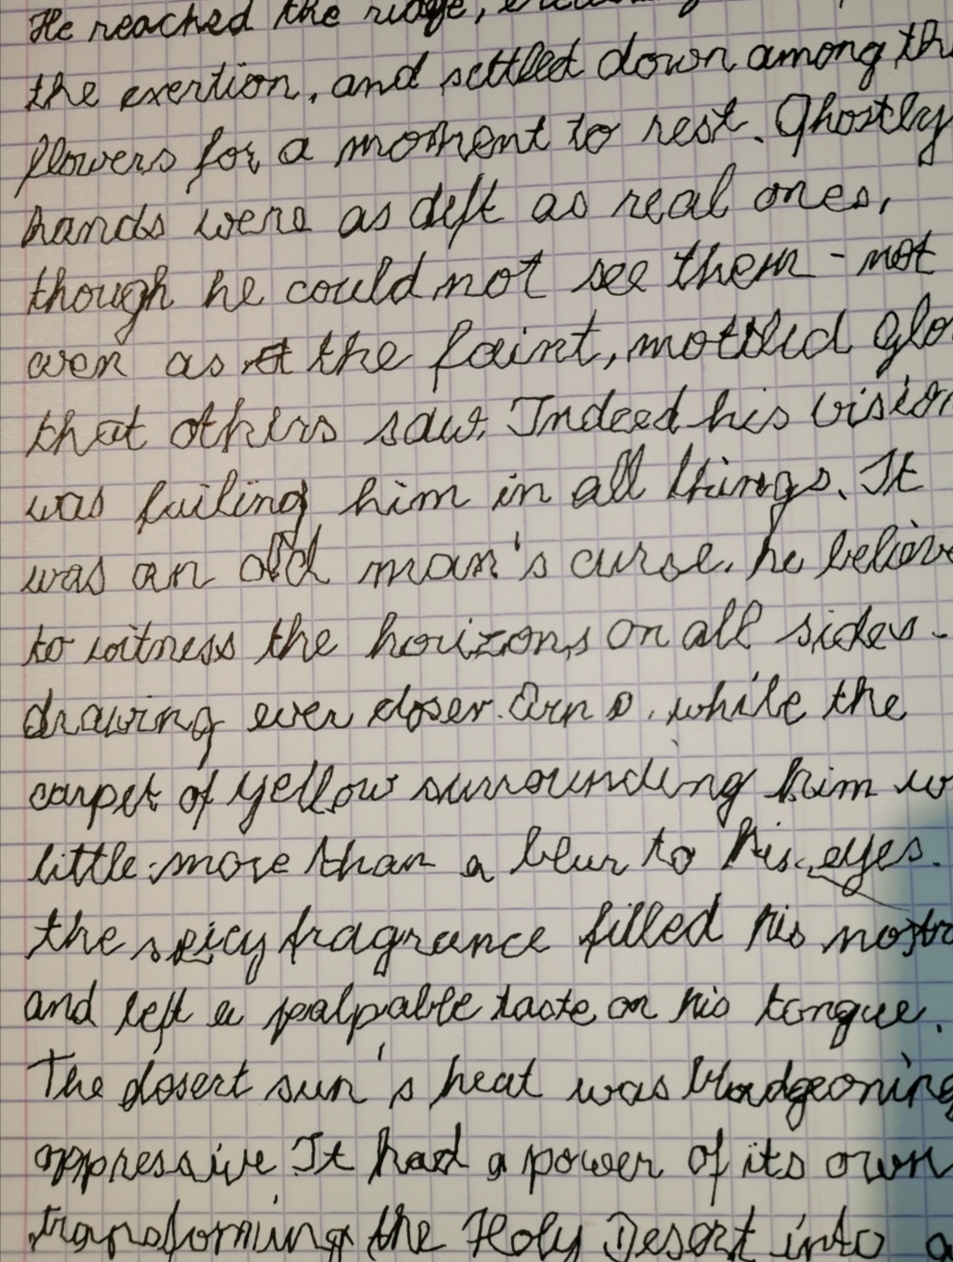 He reached the ridge,
the exertion, and settled down among th
flowers for a moment to rest. Ghostly
hands were as deft as real ones,
though he could not see them - not
even as the faint, mottled glo
that others saw. Indeed his vision
was failing him in all things. It
was an old man's curse, he believ
to witness the horizons on all sides
drawing ever closer. while the
carpet of yellow surrounding him w
little more than a blur to his eyes.
the spicy fragrance filled his nostr
and left a palpable taste on his tongue.
The desert sun's heat was bludgeoning
oppressive It had a power of its own
transforming the Holy Desert into a